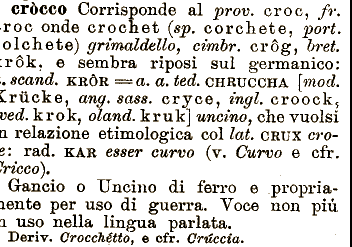 cròcco Corrisponde al prov. croc, fr.
croc onde crochet (sp. corchete, port.
colchete) grimaldello, cimbr. crôg, bret.
krôk, e sembra riposi sul germanico:
a. scand. KRÔR = a. a. ted. CHRUCCHA [mod.
Krücke, ang. sass. cryce, ingl. croock,
sved. krok, oland. kruk] uncino, che vuolsi
in relazione etimologica col lat. CRUX cro-
ce: rad. KAR esser curvo (v. Curvo e cfr.
Cricco).
Gancio o Uncino di ferro e propria-
mente per uso di guerra. Voce non più
in uso nella lingua parlata.
Deriv. Crocchétto, e cfr. Crúccia.